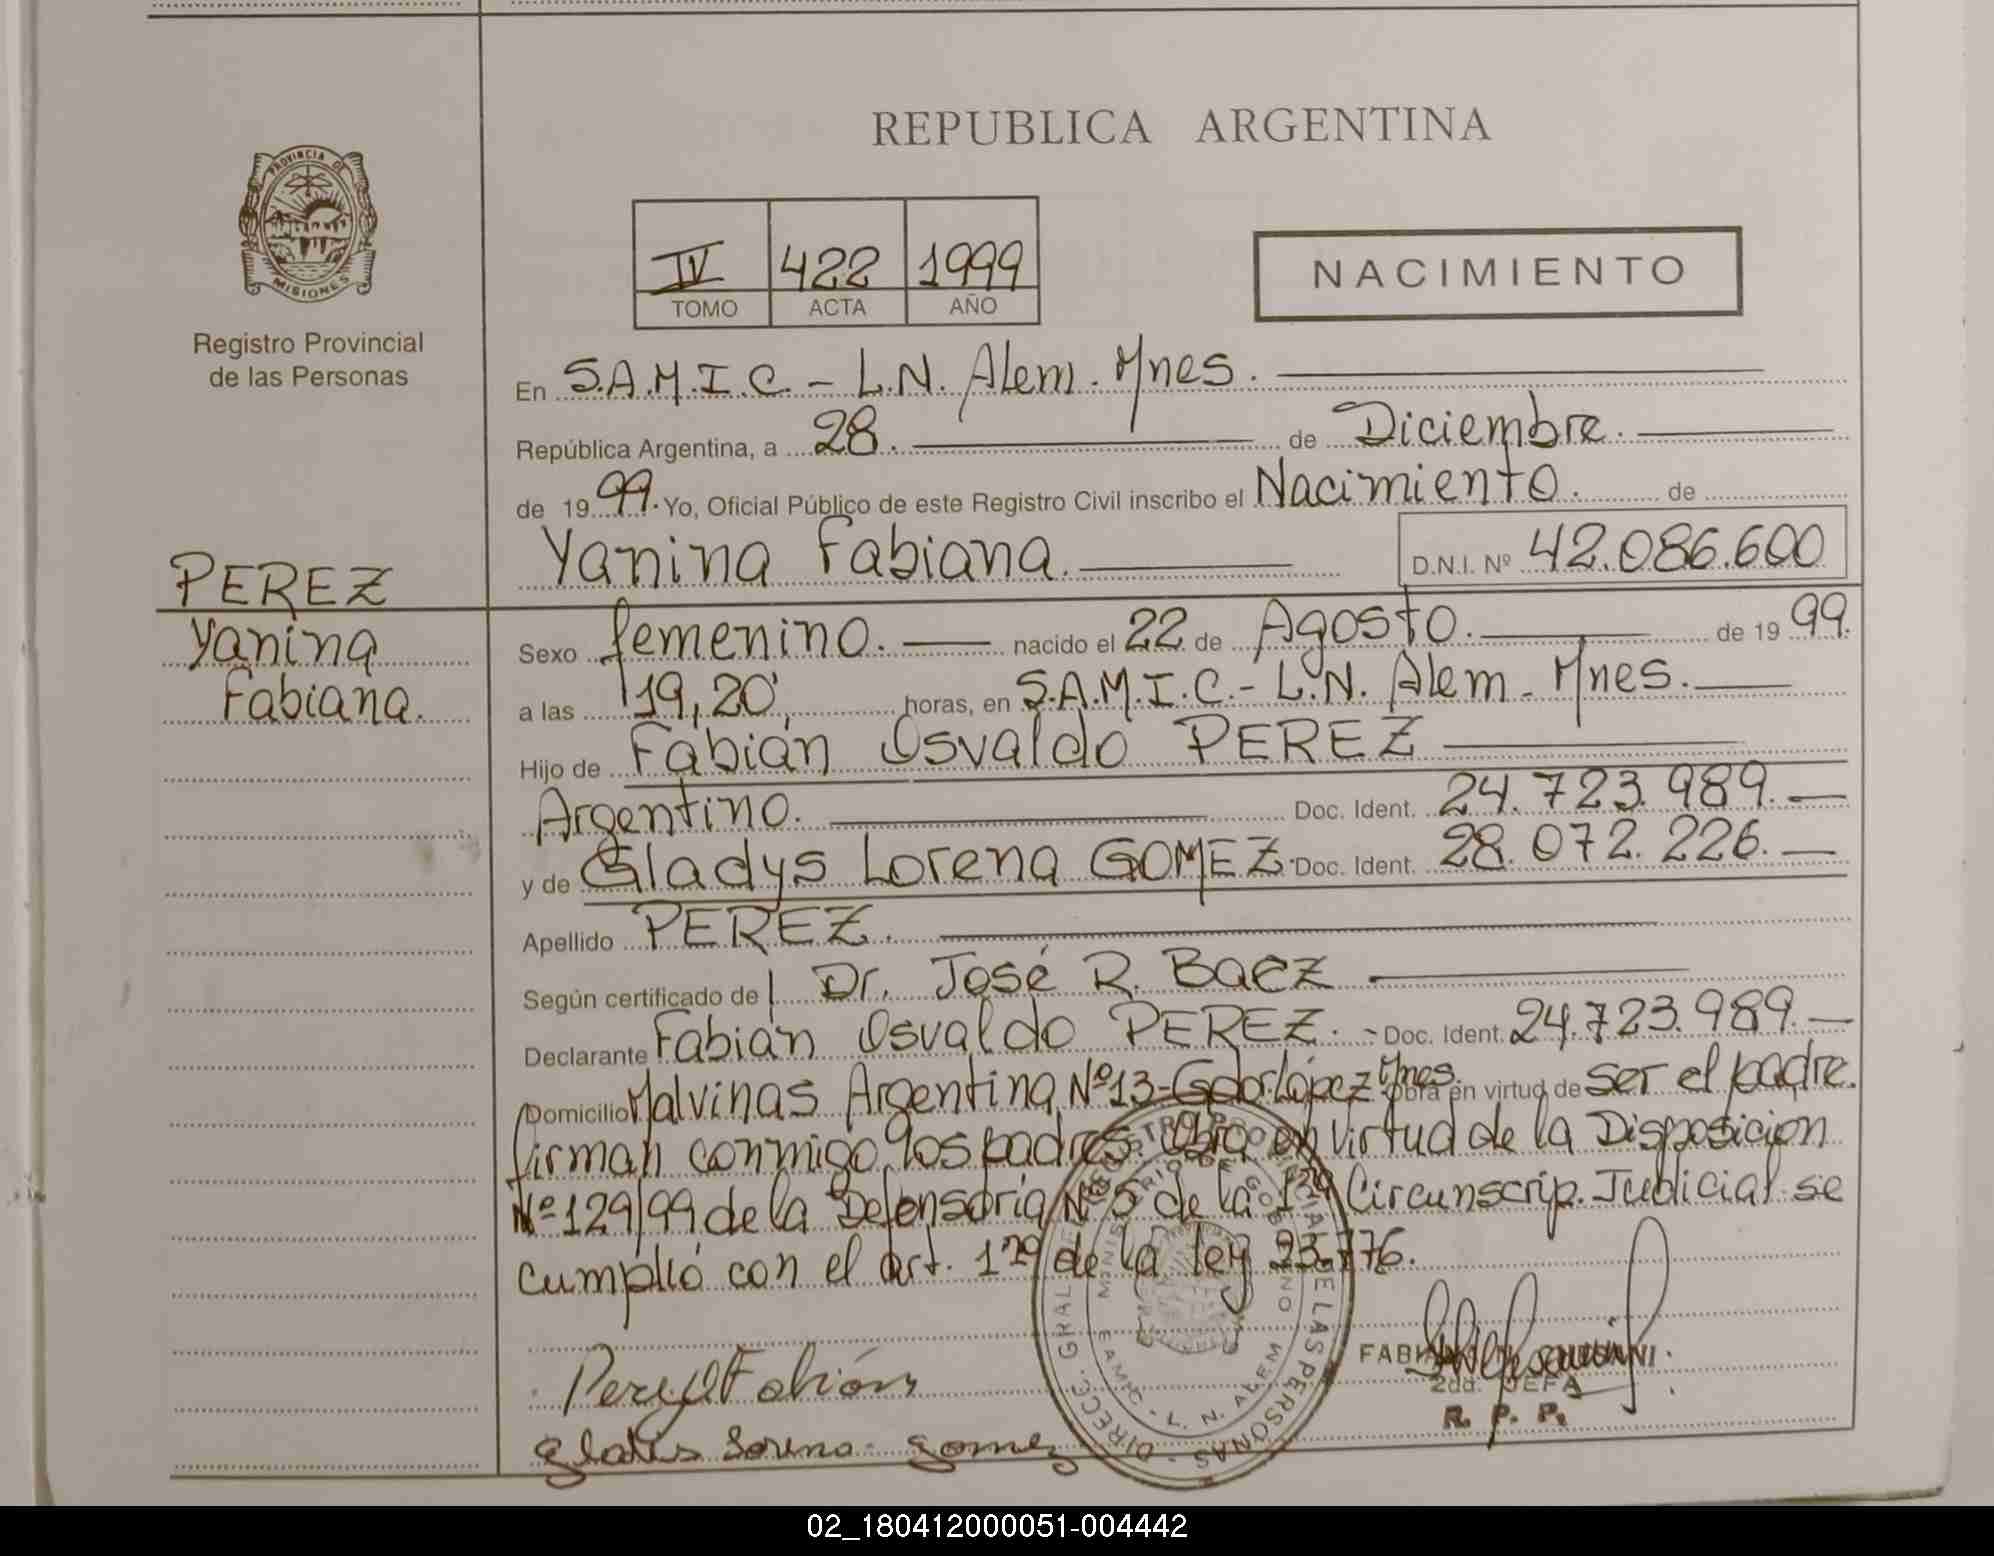 REPUBLICA ARGENTINA
PROVINCIA DE
MISIONES
Registro Provincial
de las Personas
IV 422 1999
TOMO ACTA AÑO
NACIMIENTO
En S.A.M.I.C. - L.N. Alem. Mnes.
República Argentina, a 28. de Diciembre.
de 1999. Yo, Oficial Público de este Registro Civil inscribo el Nacimiento. de
Yanina Fabiana. D.N.I. Nº 42.086.600
PEREZ
Yanina
Fabiana.
Sexo femenino. nacido el 22 de Agosto. de 1999.
a las 19,20 horas, en S.A.M.I.C. - L.N. Alem. Mnes.
Hijo de Fabián Osvaldo PEREZ
Argentino. Doc. Ident. 24.723.989.
y de Gladys Lorena GOMEZ. Doc. Ident. 28.072.226.
Apellido PEREZ.
Según certificado de Dr. José R. Baez
Declarante Fabián Osvaldo PEREZ. - Doc. Ident. 24.723.989.
Domicilio Malvinas Argentina Nº 13 - Gdor. López Mnes. obra en virtud de ser el padre.
firman conmigo los padres. Obra en virtud de la Disposicion
Nº 129/99 de la Defensoria Nº 5 de la 1ra Circunscrip. Judicial se
cumplió con el art. 1º de la ley 23.776.
Perez Fabián
Gladis Lorena Gomez
DIRECC. GRAL. DEL REGISTRO PROVINCIAL DE LAS PERSONAS
MINISTERIO DE GOBIERNO
SAMIC - L. N. ALEM
2da. JEFA
R. P. P.
02_180412000051-004442